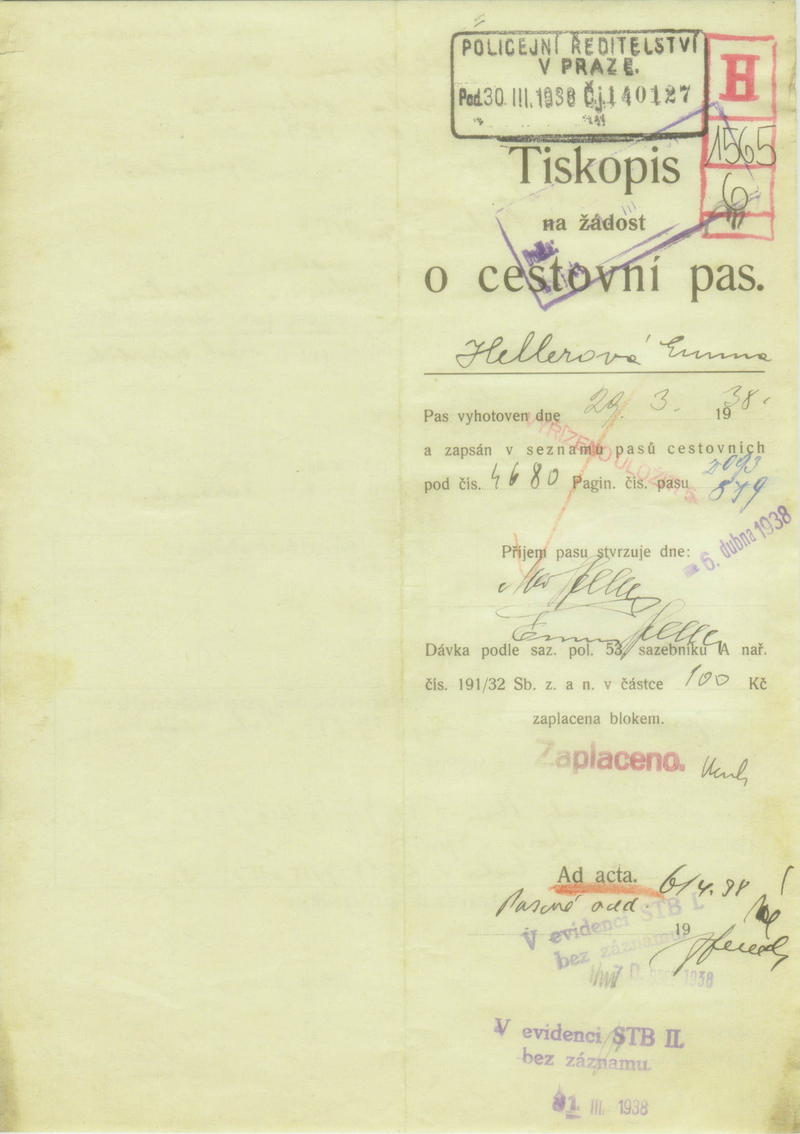 POLICEJNÍ ŘEDITELSTVÍ
V PRAZE.
Pod. 30. III. 1938 Čj. 140127
H
1565
6
Tiskopis
na žádost
o cestovní pas.
Hellerová Emma
Pas vyhotoven dne 29. 3. 1938.
a zapsán v seznamu pasů cestovních
VYŘÍZENO ULOŽIT
pod čís. 4680 Pagin. čís. pasu 2093
879
- 6. dubna 1938
Příjem pasu stvrzuje dne:
Heller
Emma Heller
Dávka podle saz. pol. 53, sazebníku A nař.
čís. 191/32 Sb. z. a n. v částce 100 Kč
zaplacena blokem.
Zaplaceno.
Ad acta. 6/4. 38
Pasové odd.
19
V evidenci STB I.
bez záznamu
1938
V evidenci STB II.
bez záznamu.
31. III. 1938